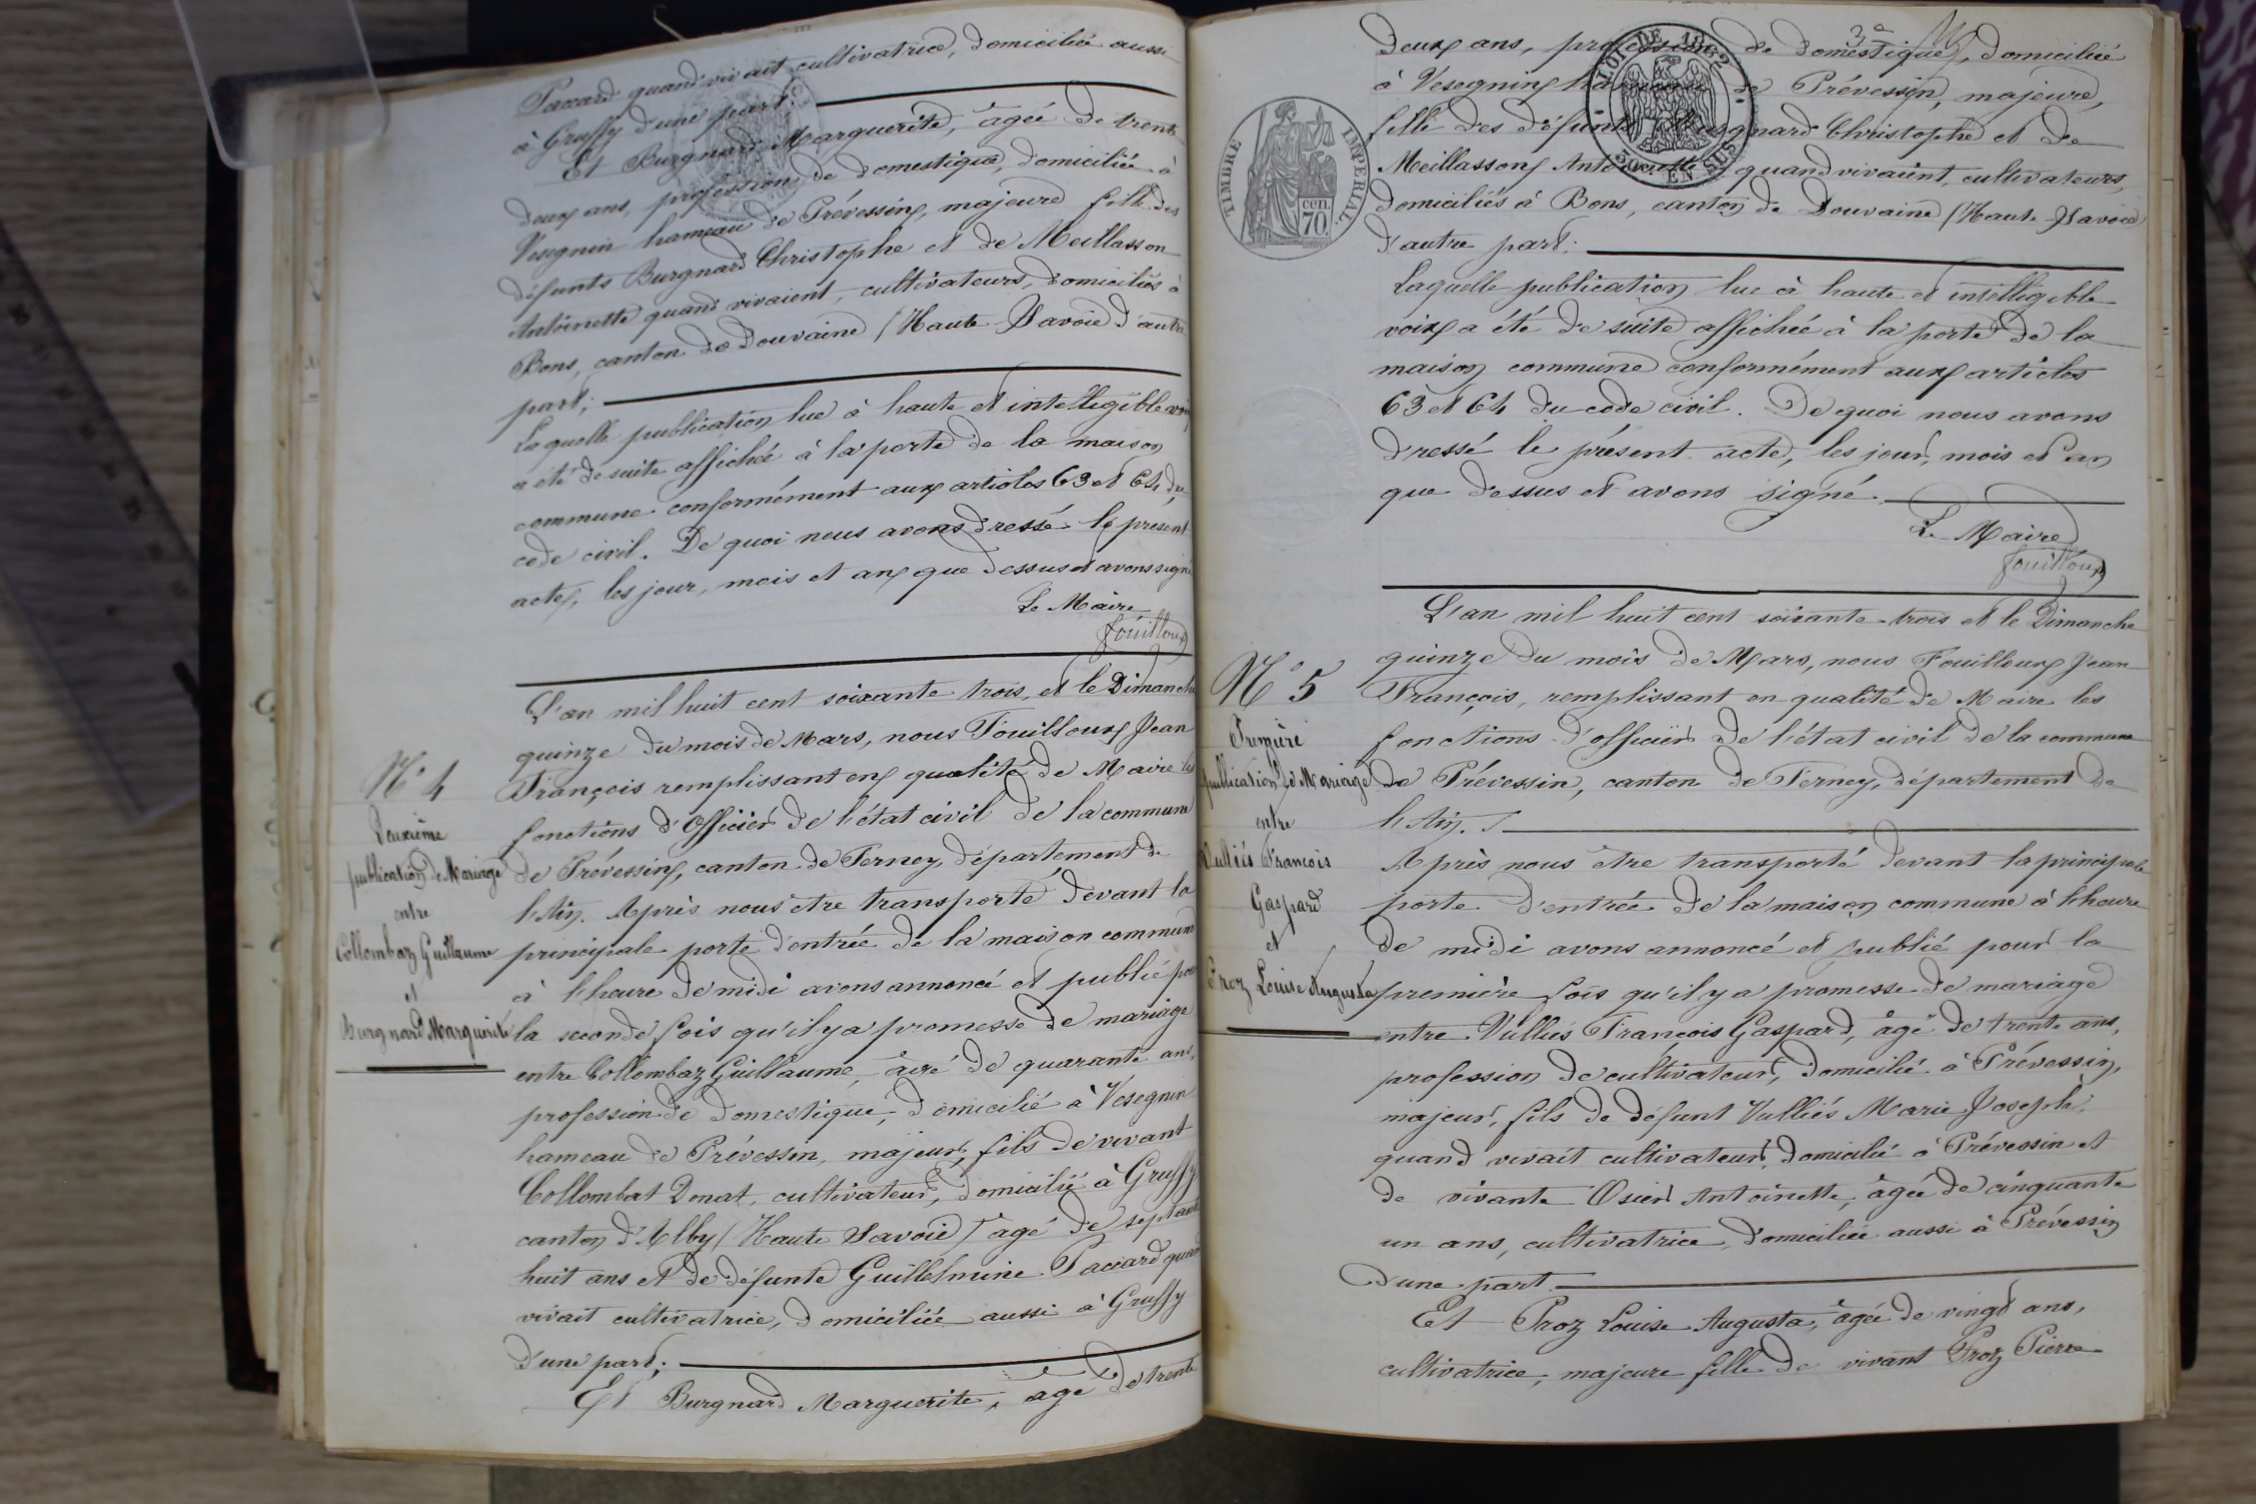 Paccard quand vivait cultivatrice, domiciliée aussi
à Gruffy d'une part.
Et Burgnard Marguerite, âgée de trente
deux ans, profession de domestique, domiciliée à
Vesegnin hameau de Prévessin, majeure fille des
défunts Burgnard Christophe et de Meillasson
Antoinette quand vivaient, cultivateurs, domiciliés à
Bons, canton de Douvaine (Haute Savoie d'autre
part;
Laquelle publication lue à haute et intelligible voix
a été de suite affichée à la porte de la maison
commune conformément aux articles 63 et 64 du
code civil. De quoi nous avons dressé le présent
acte, les jour, mois et an que dessus et avons signé
Le Maire
Fouilloux
N° 4
Deuxième
publication de Mariage
entre
Collombaz Guillaume
et
Burgnard Marguerite
L'an mil huit cent soixante trois et le Dimanche
quinze du mois de Mars, nous Fouilloux Jean
François remplissant en qualité de Maire les
fonctions d'Officier de l'état civil de la commune
de Prévessin, canton de Ferney, département de
l'Ain. Après nous être transporté devant la
principale porte d'entrée de la maison commune
à l'heure de midi avons annoncé et publié pour
la seconde fois qu'il y a promesse de mariage
entre Collombaz Guillaume, âgé de quarante ans,
profession de domestique, domicilié à Vesegnin
hameau de Prévessin, majeur, fils de vivant
Collombat Donat, cultivateur, domicilié à Gruffy
canton d'Alby (Haute Savoie) âgé de septante
huit ans et de défunte Guillelmine Paccard quand
vivait cultivatrice, domiciliée aussi à Gruffy
d'une part;
Et Burgnard Marguerite, âgé de trente
3e
deux ans, profession de domestique, domiciliée
à Vesegnin hameau de Prévessin, majeure,
fille des défunts Burgnard Christophe et de
Meillasson Antoinette quand vivaient, cultivateurs,
domiciliés à Bons, canton de Douvaine (Haute Savoie)
d'autre part:
LOI DE 1862
50 EN SUS
TIMBRE IMPERIAL
cen.
70.
Laquelle publication lue à haute et intelligible
voix a été de suite affichée à la porte de la
maison commune conformément aux articles
63 et 64 du code civil. De quoi nous avons
dressé le présent acte, les jour, mois et an
que dessus et avons signé.
Le Maire
Fouilloux
N° 5
Première
publication de Mariage
entre
Vulliés François
Gaspard
et
Proz Louise Augusta
L'an mil huit cent soixante-trois et le Dimanche
quinze du mois de Mars, nous Fouilloux Jean
François, remplissant en qualité de Maire les
fonctions d'officier de l'état civil de la commune
de Prévessin, canton de Ferney, département de
l'Ain.
Après nous être transporté devant la principale
porte d'entrée de la maison commune à l'heure
de midi avons annoncé et publié pour la
première fois qu'il y a promesse de mariage
entre Vulliés François Gaspard, âgé de trente ans,
profession de cultivateur, domicilié à Prévessin,
majeur, fils de défunt Vulliés Marie Joseph,
quand vivait cultivateur, domicilié à Prévessin et
de vivante Osier Antoinette, âgée de cinquante
un ans, cultivatrice domiciliée aussi à Prévessin
d'une part
Et Proz Louise Augusta, âgée de vingt ans,
cultivatrice, majeure fille de vivant Proz Pierre